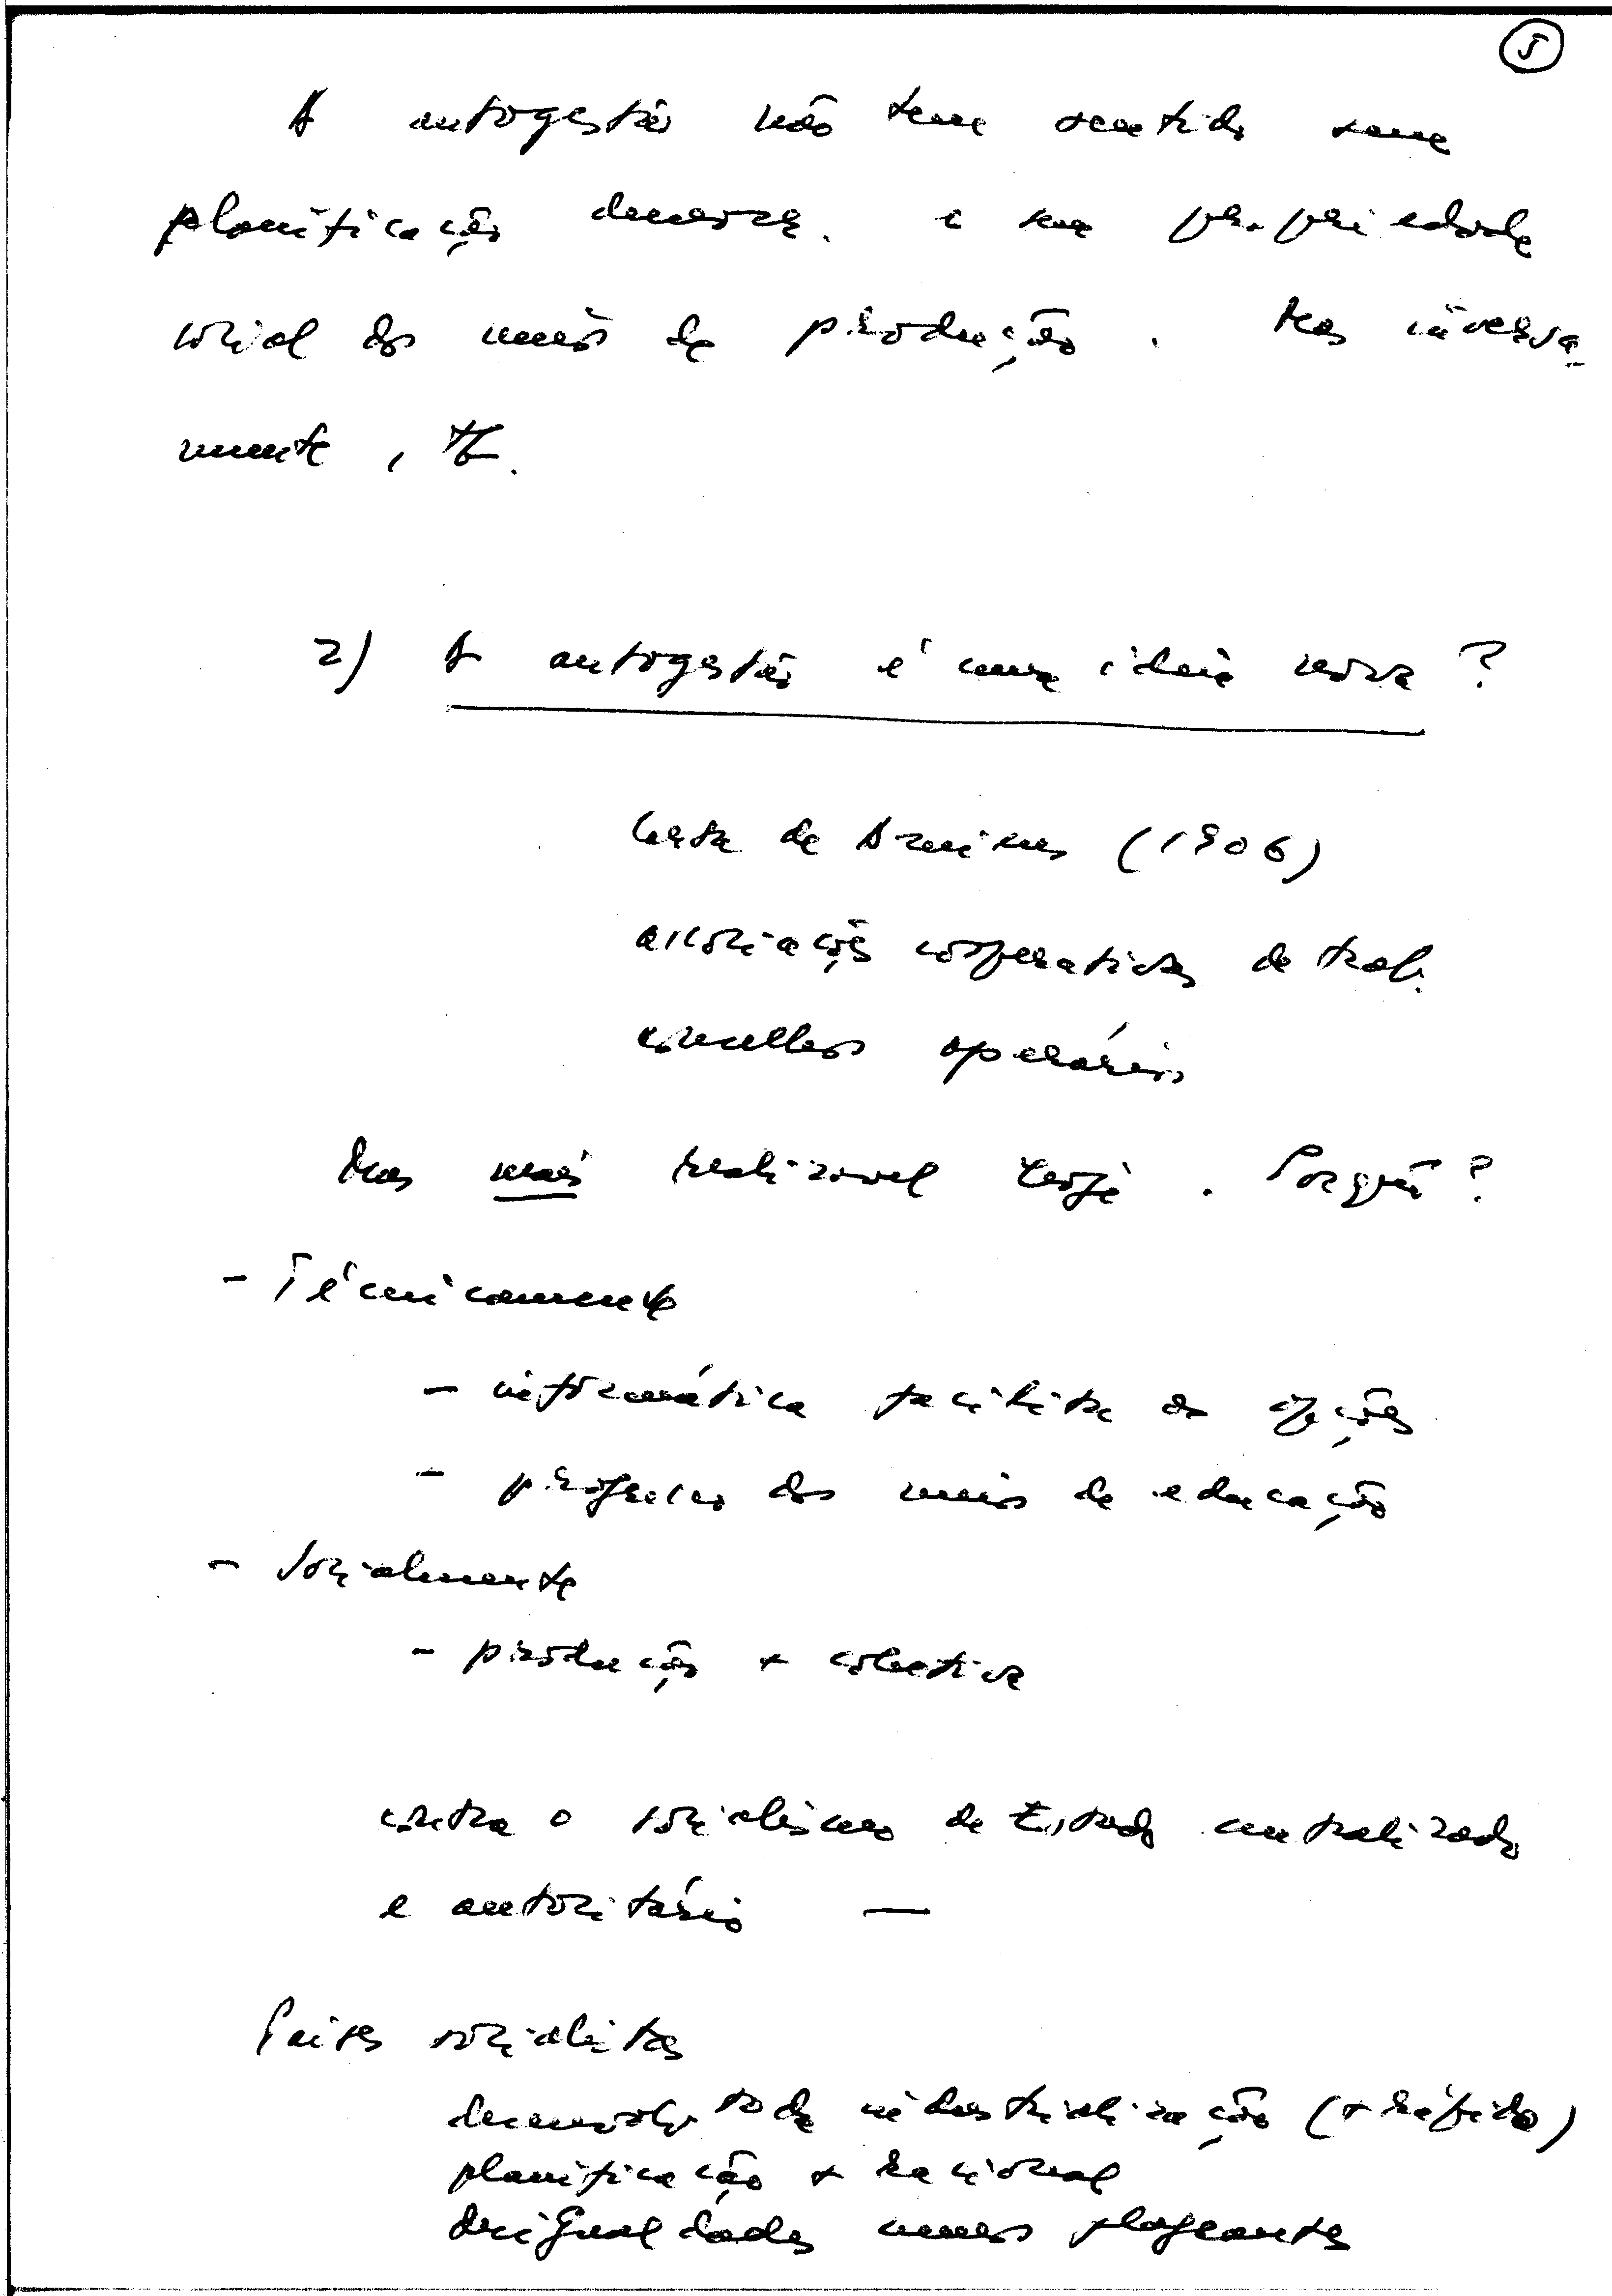 5
A autogestão não tem sentido sem
planificação democ. e sem propriedade
social dos meios de produção. Mas inversa-
mente, tb.
2) A autogestão é uma ideia nova?
Carta de Amiens (1906)
associações cooperativas de trab.
conselhos operários
Mas mais realizável hoje. Porquê?
- Técnicamente
- informática facilita as opções
- progresso dos meios de educação
- Socialmente
- produção + colectiva
contra o socialismo de Estado centralizado
e autoritário —
Países socialistas
desenvolvto da industrialização (+ rápido)
planificação + racional
desigualdades menos flagrantes